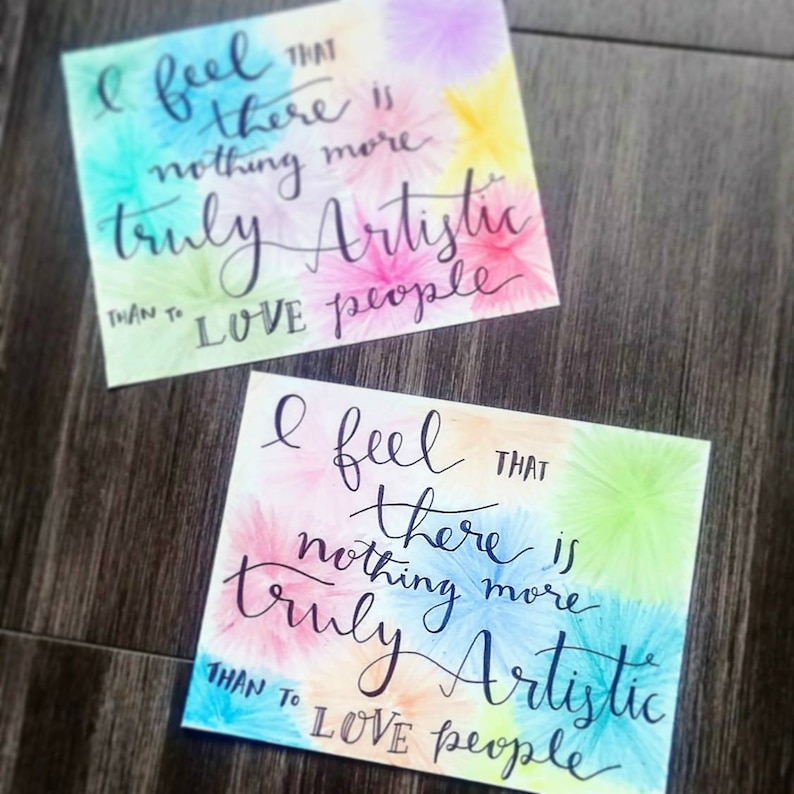 I feel THAT
there is
nothing more
truly Artistic
THAN TO LOVE people
I feel THAT
there is
nothing more
truly Artistic
THAN TO LOVE people